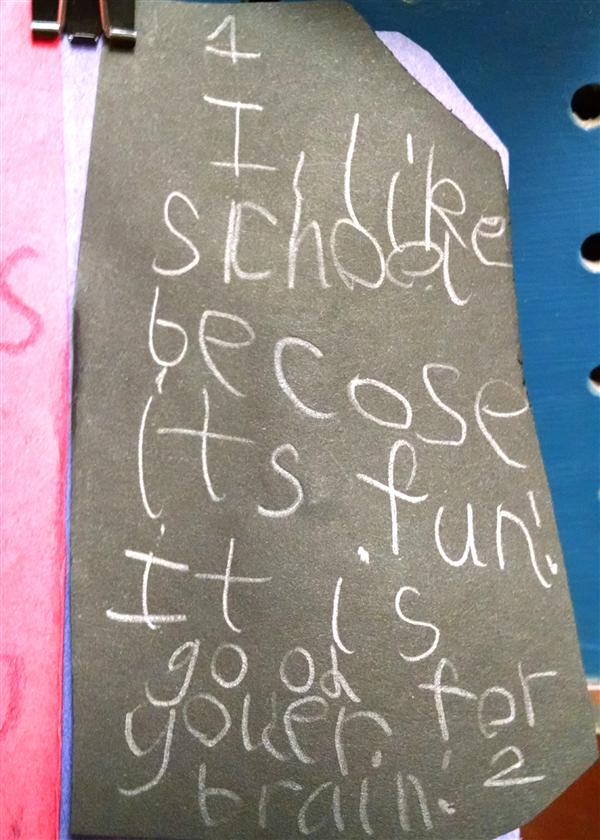 1
I like
school
becose
its fun!
It is
good for
youer
brain. 2
S